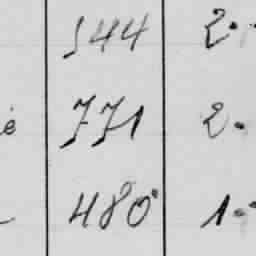 544 2.
é 771 2.
480 1.